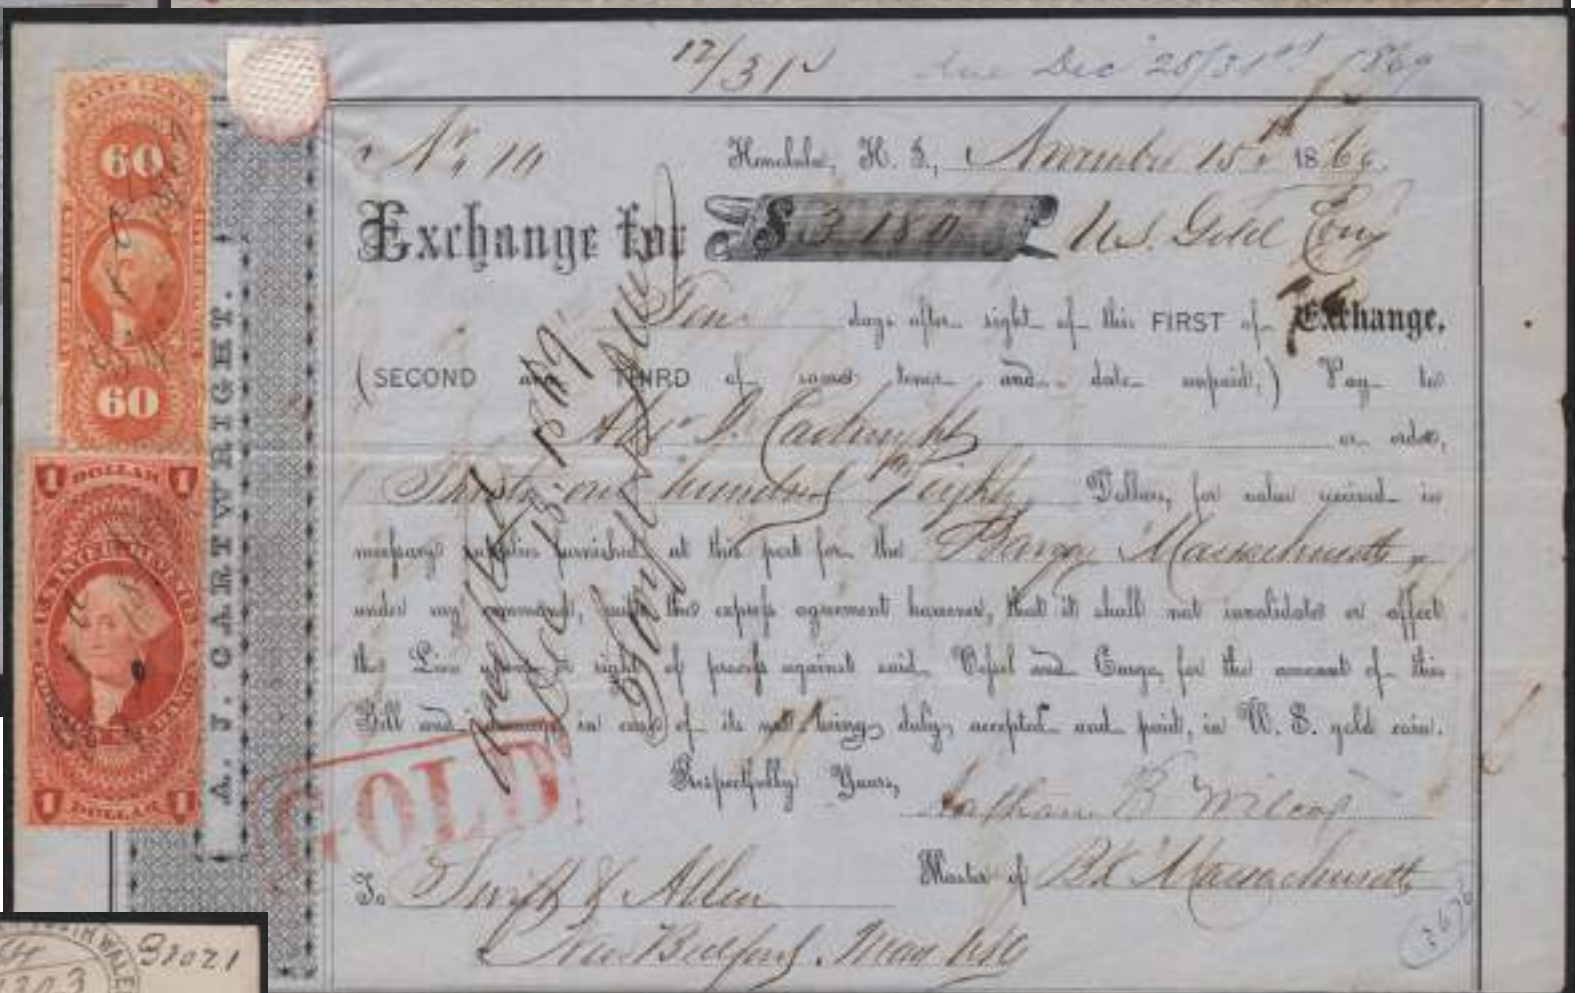 12/31
due Dec 28/31st 1869
No 10 Honolulu, H. I., November 15th 1869
Exchange for $3180 U.S. Gold Coin
Ten days after sight of this FIRST of Exchange.
(SECOND and THIRD of same tenor and date unpaid,) Pay to
Alex J. Cartwright or order,
Thirty one hundred & Eighty Dollars, for value received in
necessary supplies furnished at this port for the Barque Massachusetts
under my command, with the express agreement however, that it shall not invalidate or affect
the Lien upon or right of process against said Vessel and Cargo, for the amount of this
Bill and damage in case of its not being duly accepted and paid, in U. S. gold coin.
Respectfully Yours,
Nathan B Wilcox
Master of Bk Massachusetts
To Swift & Allen
New Bedford. Mass
A. J. CARTWRIGHT.
GOLD
Accepted
Dec 18. 1869
Swift & Allen
60
60
1 DOLLAR 1
1 DOLLAR 1
3676
31021
1303